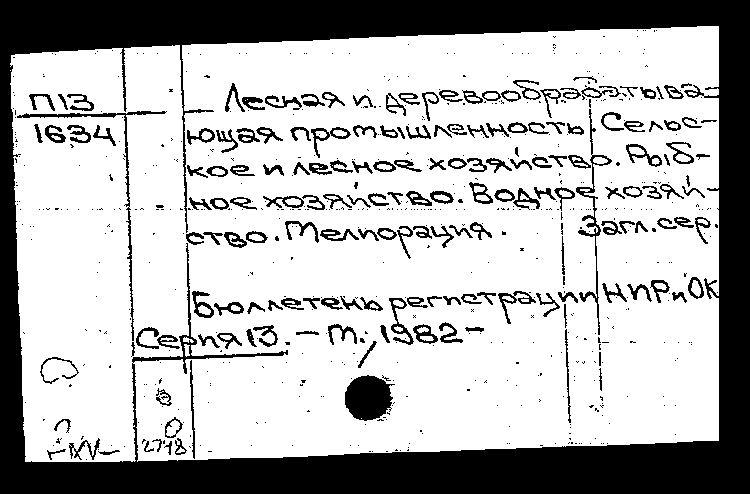 П13
1634
Лесная и деревообрабатыва-
ющая промышленность. Сельс-
кое и лесное хозяйство. Рыб-
ное хозяйство. Водное хозяй-
ство. Мелиорация. Загл. сер.
Бюллетень регистрации НИР и ОКР
Серия 13. – М., 1982 –
2748